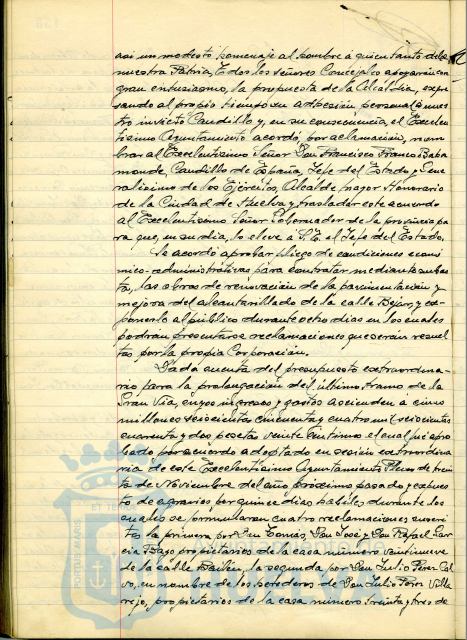 así un modesto homenaje al hombre á quien tanto debe
nuestra Patria, Todos los señores Concejales apoyaron con
gran entusiasmo, la propuesta de la Alcaldía, expre-
sando al propio tiempo su adhesión personal á nues-
tro invicto Caudillo y, en su consecuencia, el Excelen-
tísimo Ayuntamiento acordó, por aclamación, nom-
brar al Excelentísimo Señor Don Francisco Franco Baha-
monde, Caudillo de España, Jefe del Estado y Gene-
ralísimo de los Ejércitos, Alcalde mayor Honorario
de la Ciudad de Huelva y trasladar este acuerdo
al Excelentísimo Señor Gobernador de la provincia pa-
ra que, en su día, lo eleve á S. E. el Jefe del Estado.
Se acordó aprobar pliego de condiciones econó-
mico-administrativas para contratar mediante subas-
ta, las obras de renovación de la pavimentación y
mejora del alcantarillado de la calle Béjar, y ex-
ponerlo al público durante ocho días en los cuales
podrán presentarse reclamaciones que serán resuel-
tas por la propia Corporación.
Dada cuenta del presupuesto extraordina-
rio para la prolongación del último tramo de la
Gran Vía, cuyos ingresos y gastos ascienden á cinco
millones seiscientas cincuenta y cuatro mil seiscientas
cuarenta y dos pesetas veinte céntimos el cual fué apro-
bado por acuerdo adoptado en sesión extraordina-
ria de este Excelentísimo Ayuntamiento Pleno de trein-
ta de Noviembre del año próximo pasado y expuesto
de agravios por quince días hábiles durante los
cuales se formularon cuatro reclamaciones suscri-
tas la primera por Don Tomás, Don José y Don Rafael Gar-
cía Bago propietarios de la casa número veintinueve
de la calle Bailén, la segunda por Don Julio Pérez Cal-
vo, en nombre de los herederos de Don Julio Pérez Villa-
rejo, propietarios de la casa número treinta y tres de
ET TERRAE
PORTUS MARIS